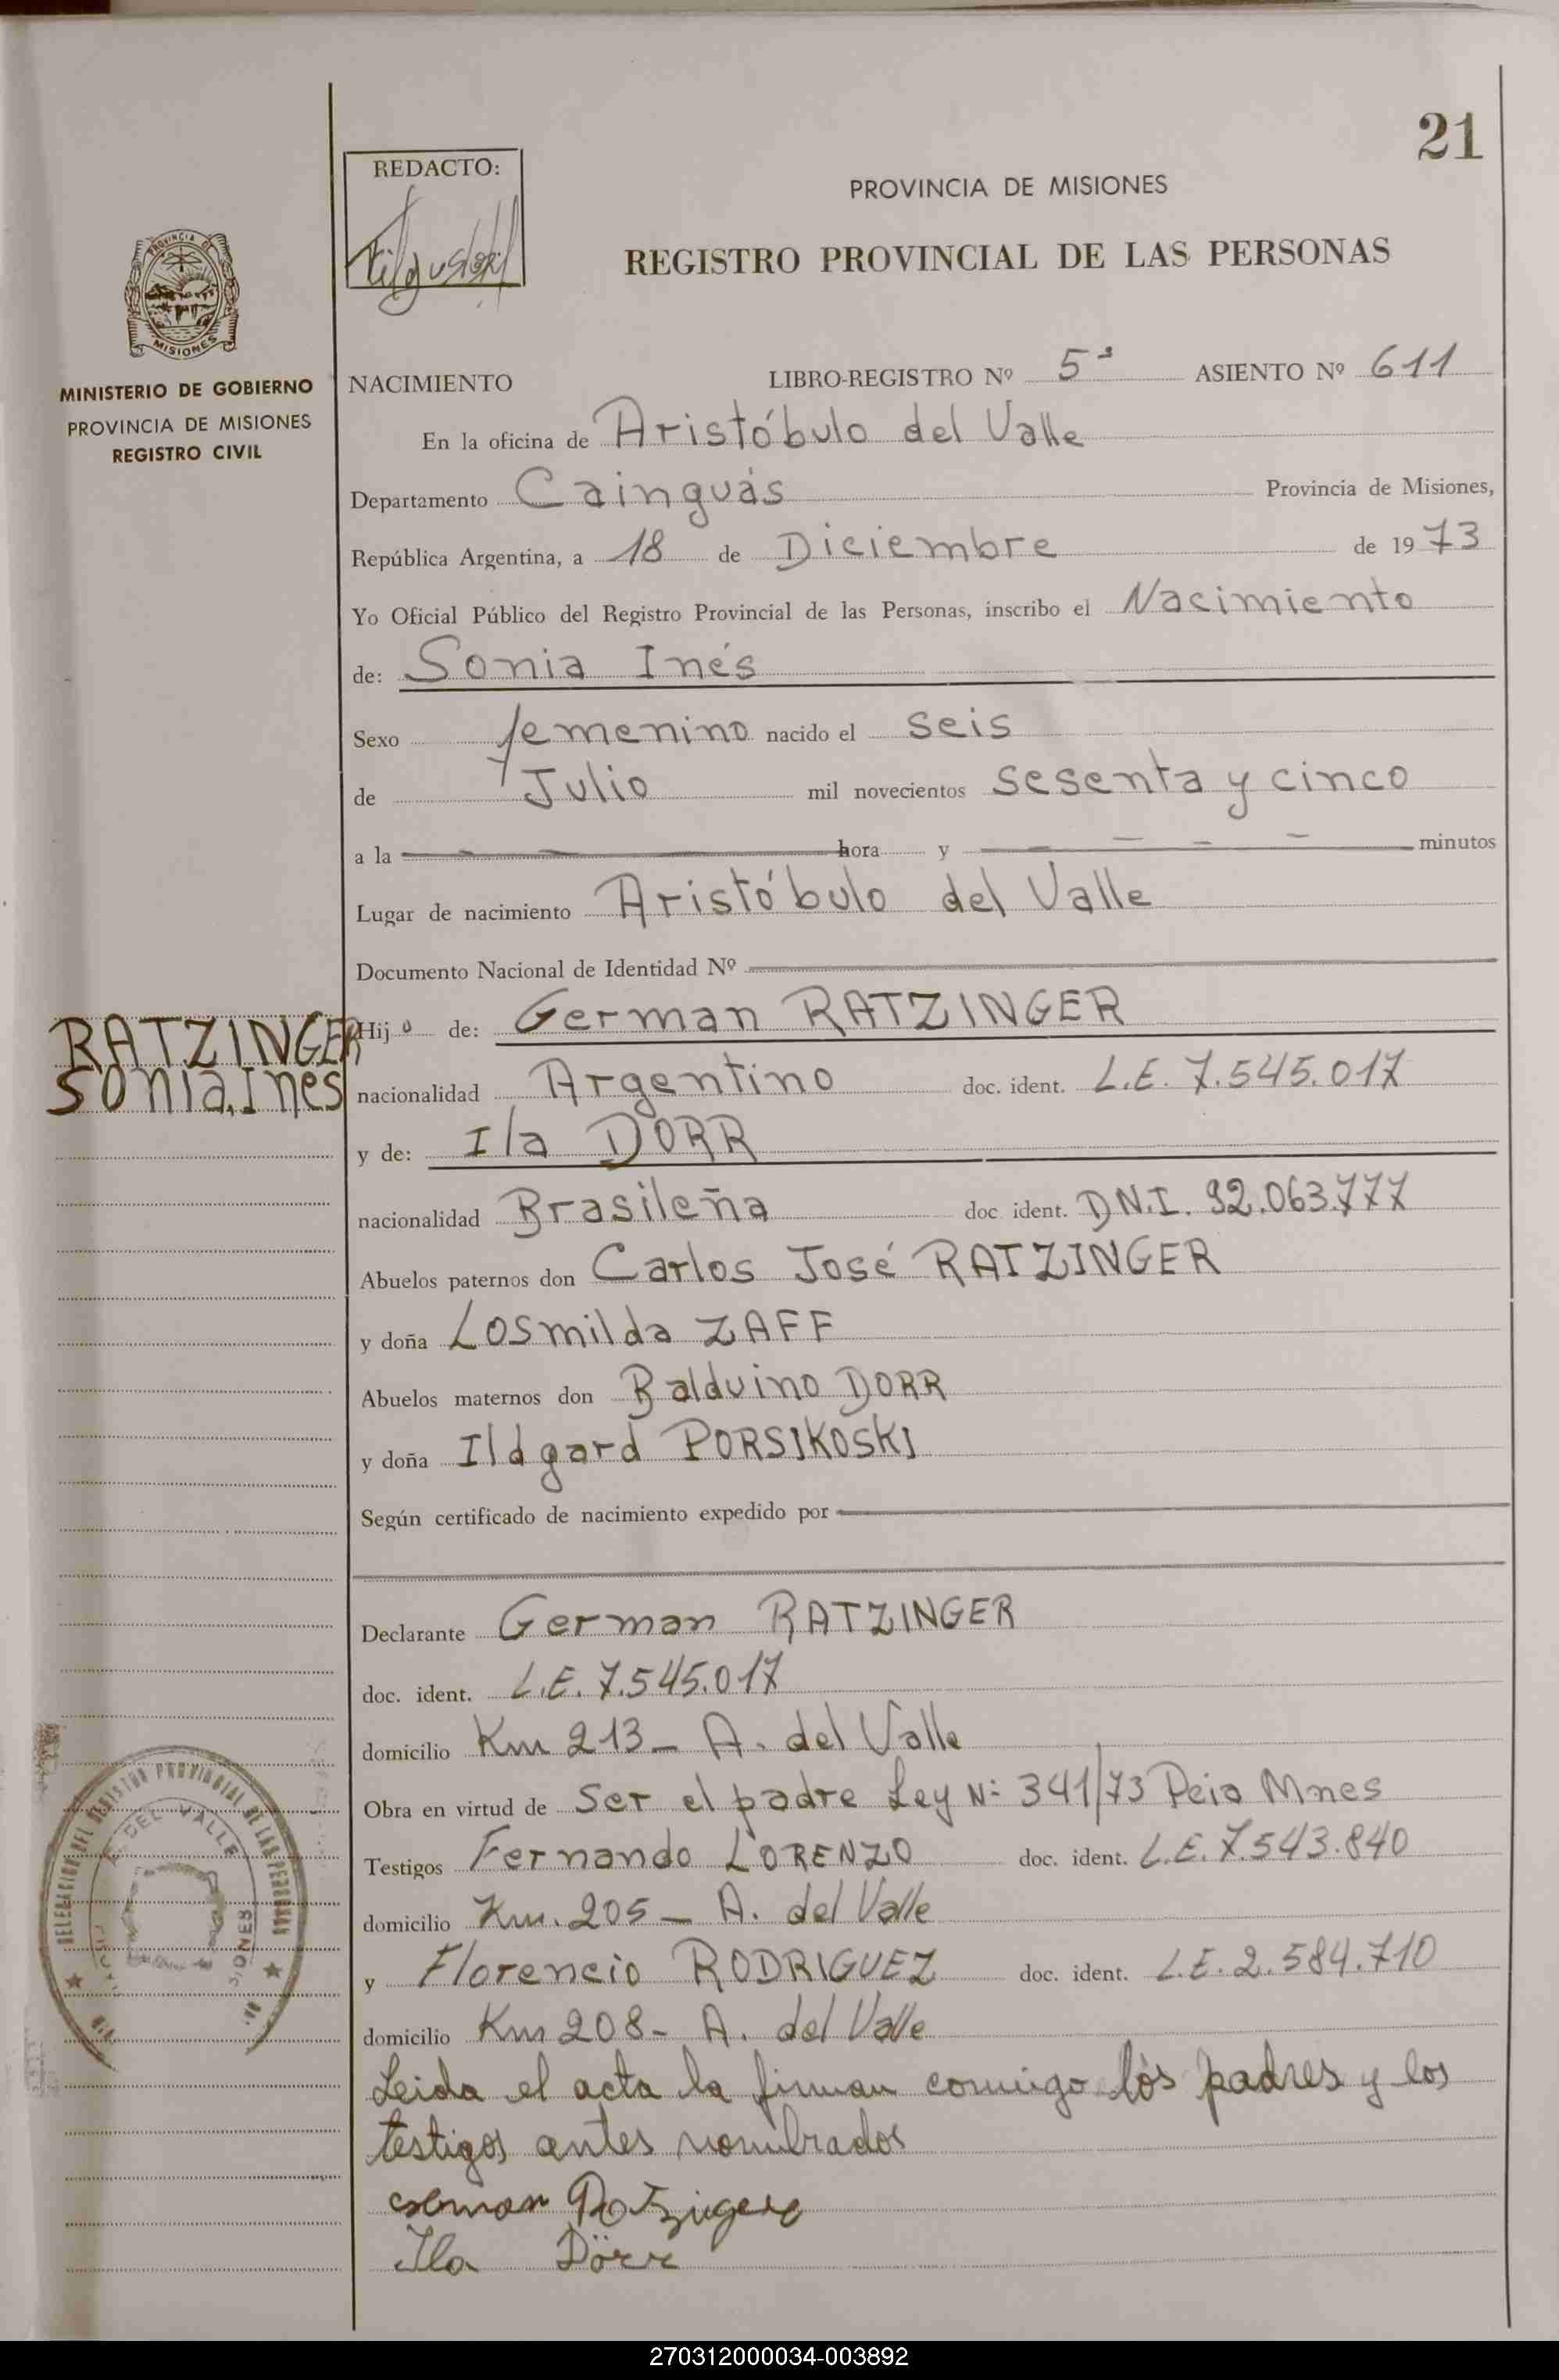 21
REDACTO:
PROVINCIA DE MISIONES
REGISTRO PROVINCIAL DE LAS PERSONAS
PROVINCIA DE
MISIONES
MINISTERIO DE GOBIERNO
PROVINCIA DE MISIONES
REGISTRO CIVIL
NACIMIENTO LIBRO-REGISTRO Nº 5º ASIENTO Nº 611
En la oficina de Aristóbulo del Valle
Departamento Cainguás Provincia de Misiones,
República Argentina, a 18 de Diciembre de 1973
Yo Oficial Público del Registro Provincial de las Personas, inscribo el Nacimiento
de: Sonia Inés
Sexo femenino nacido el seis
de Julio mil novecientos sesenta y cinco
a la hora y minutos
Lugar de nacimiento Aristóbulo del Valle
Documento Nacional de Identidad Nº
RATZINGER
Sonia, Ines
Hijo de: German RATZINGER
nacionalidad Argentino doc. ident. L.E. 7.545.017
y de: Ila DORR
nacionalidad Brasileña doc. ident. D.N.I. 92.063.777
Abuelos paternos don Carlos José RATZINGER
y doña Losmilda ZAFF
Abuelos maternos don Balduino DORR
y doña Ildgard PORSIKOSKI
Según certificado de nacimiento expedido por
Declarante German RATZINGER
doc. ident. L.E. 7.545.017
domicilio Km 213 - A. del Valle
Obra en virtud de Ser el padre Ley Nº 341/73 Pcia Mnes
Testigos Fernando LORENZO doc. ident. L.E. 7.543.840
domicilio Km. 205 - A. del Valle
y Florencio RODRIGUEZ doc. ident. L.E. 2.584.710
domicilio Km 208 - A. del Valle
Leida el acta la firman conmigo los padres y los
testigos antes nombrados
Ila Dörr
DELEGACION DEL REGISTRO PROVINCIAL DE LAS PERSONAS
A. DEL VALLE
270312000034-003892